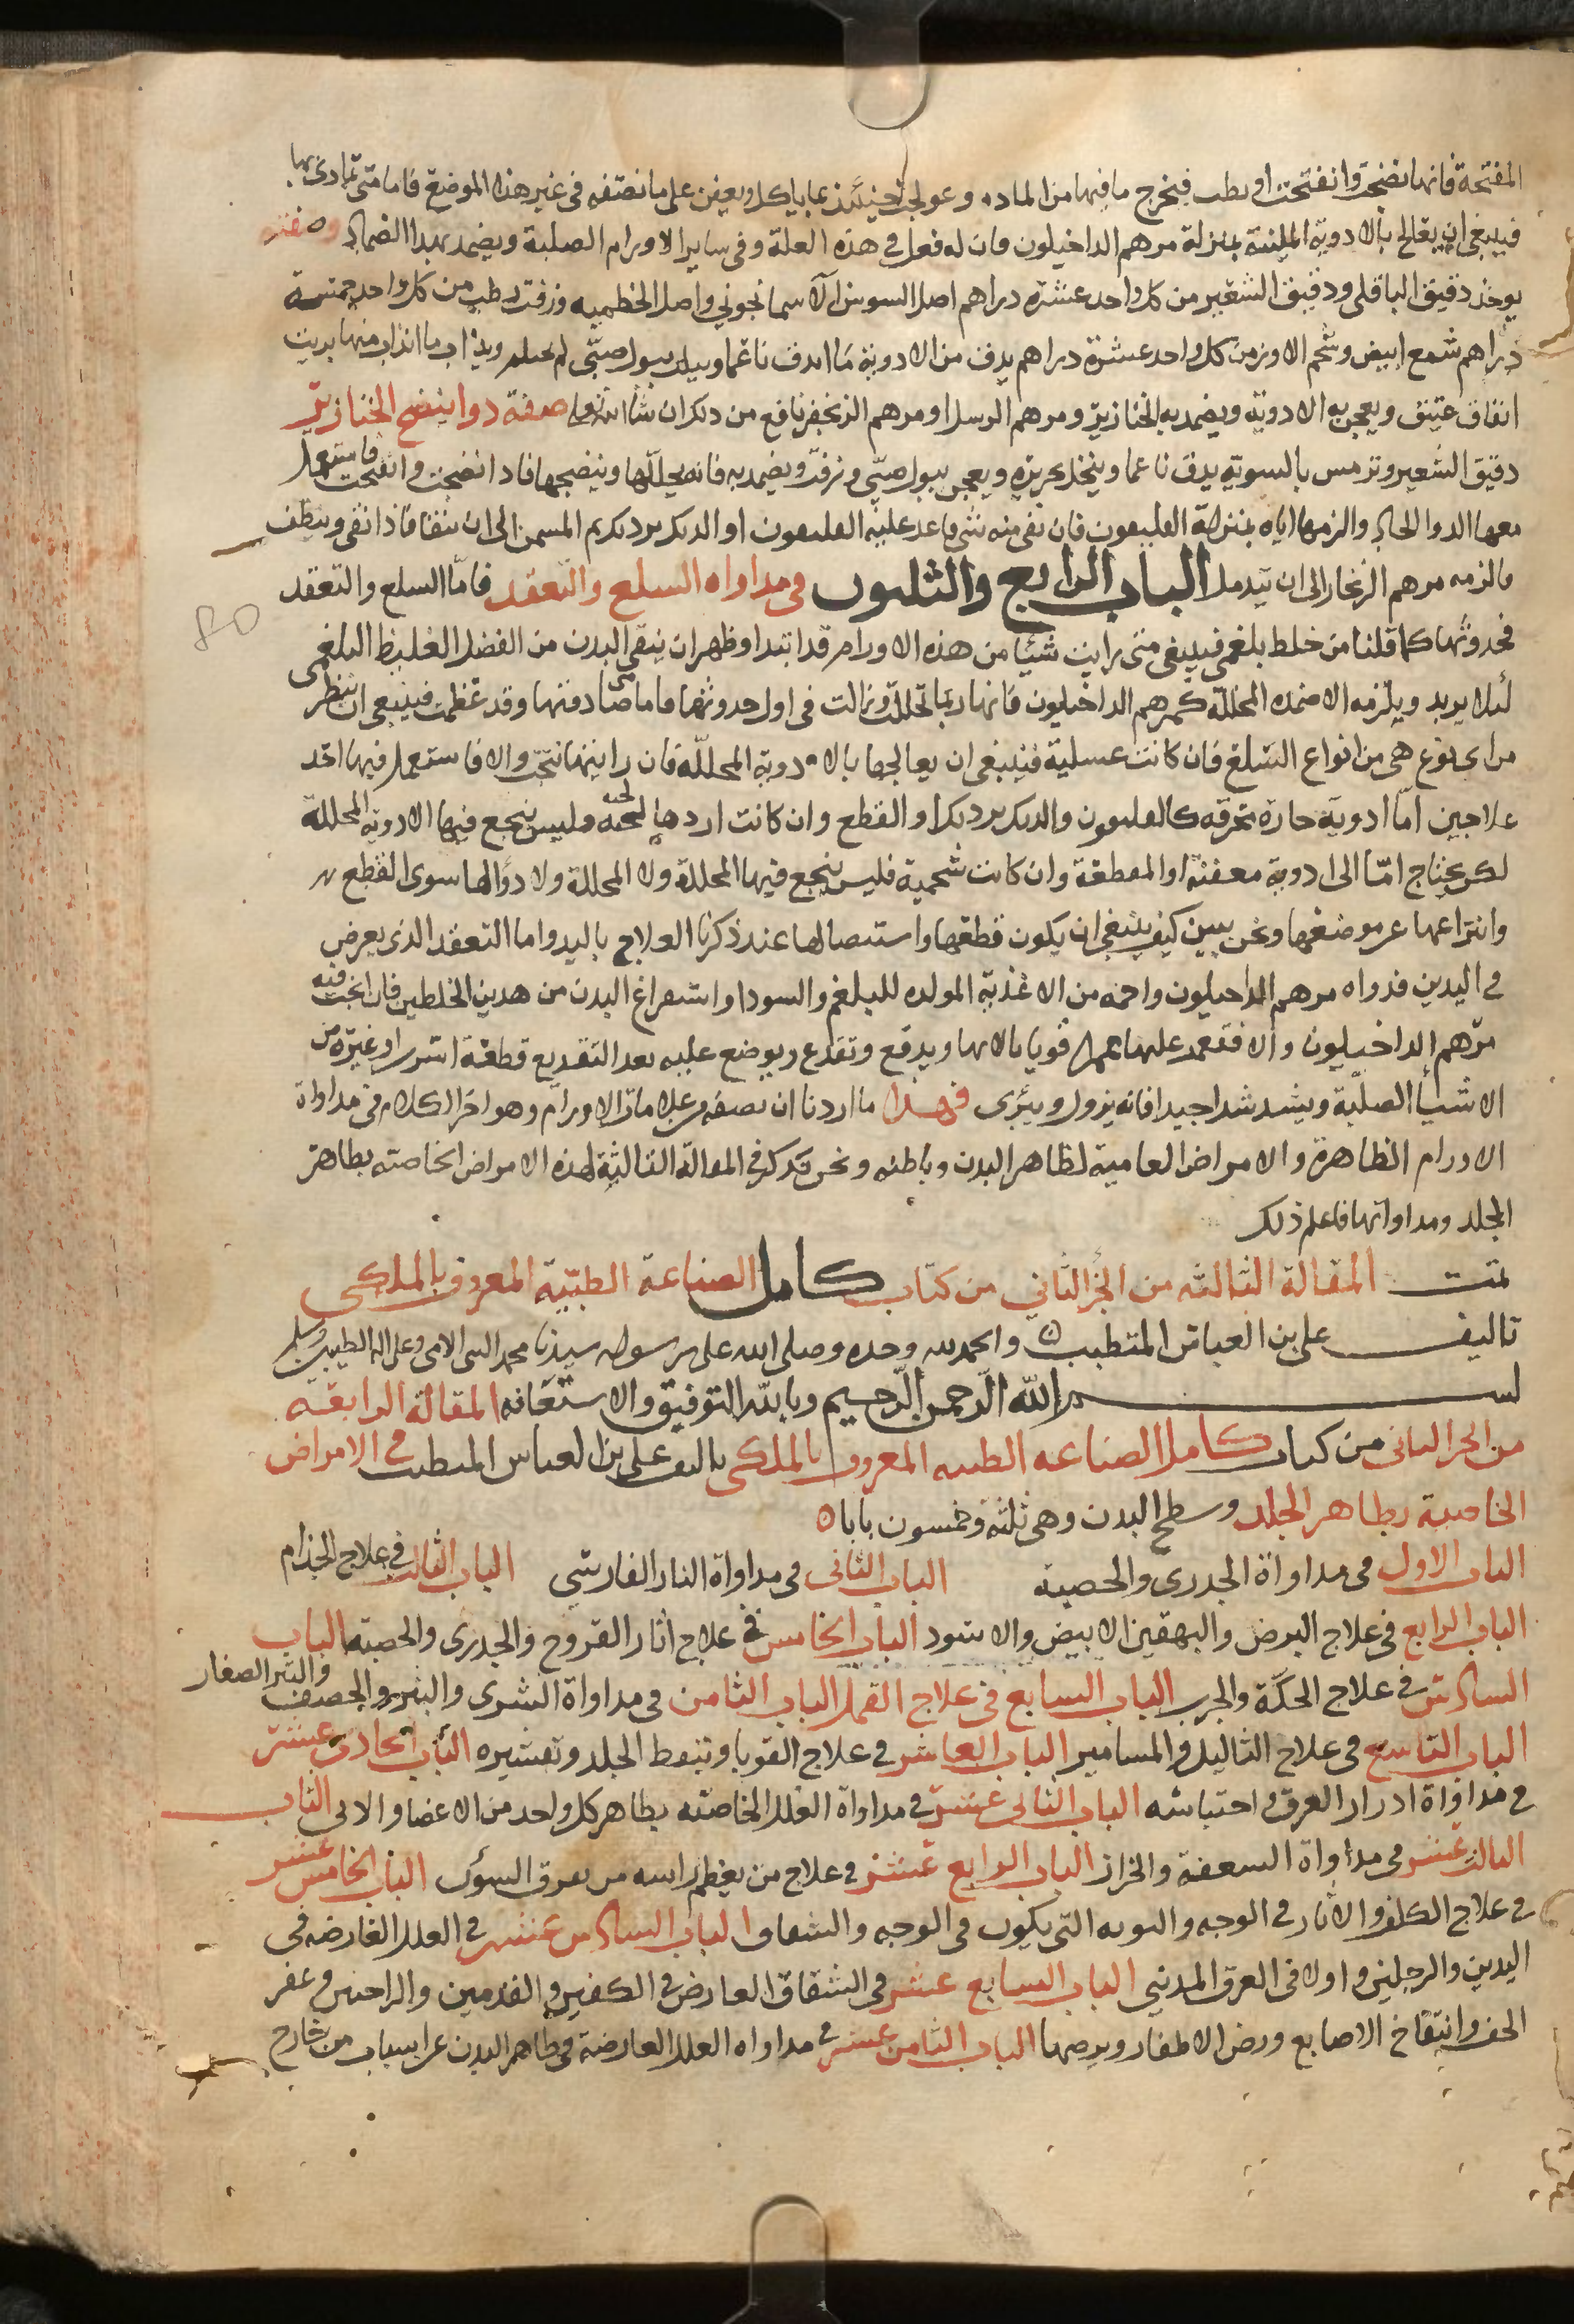 المفتحة فانها تنضجت وانفتحت او بطت فيخرج ما فيها من المادة وعولجت حينئذ بما ياكل ويعفن على ما نصفه في غير هذا الموضع فاما متى تمادى بها
فينبغي ان يعالج بالادوية الملينة بمنزلة مرهم الداخيلون فان له فعل في هذه العلة وفي ساير الاورام الصلبة ويضمد بهذا الضماد وصفته
يوخذ دقيق الباقلى ودقيق الشعير من كل واحد عشرة دراهم اصل السوسن الاسمانجوني واصل الخطمية وزفت رطب من كل واحد خمسة
دراهم شمع ابيض وشحم الاوز من كل واحد عشرة دراهم يدق من الادوية ما اندق ناعما ويبل ببول صبي لم يحتلم ويذاب ما انذاب منها بزيت
انفاق عتيق ويعجن به الادوية ويضمد به الخنازير ومرهم الرسل او مرهم الزنجفر نافع من ذلك ان شا الله تعالى صفة دوا ينضج الخنازير
دقيق الشعير وترمس بالسوية يدق ناعما وينخل بحريرة ويعجن ببول صبي وزفت ويضمد به فانه يحللها وينضجها فاذا نضجت وانفتحت فاستعمل
معها الدوا الحاد والزمها اياه بمنزلة القلديفون فان بقي منه شي فاعد عليه القلديفون او الديك برديك ثم السمن الى ان ينقا فاذا نقي وينظف
فالزمه مرهم الزنجار الى ان يندمل الباب الرابع والثلثون في مداواه السلع والتعقد فاما السلع والتعقد
فحدوثها كما قلنا من خلط بلغمي فينبغي متى رايت شيئا من هذه الاورام قد ابتدا وظهر ان ينقى البدن من الفضل الغليظ البلغمي
لئلا يزيد ويلزمه الاضمده المحللة كمرهم الداخيلون فانها ربما تحللت وزالت في اول حدوثها فاما متى صادفتها وقد عظمت فينبغي ان تنظر
من اي نوع هي من انواع السلع فان كانت عسلية فينبغي ان يعالجها بالادوية المحللة فان رايتها نتجت والا فاستعمل فيها احد
علاجين اما ادوية حارة محرقه كالقلديفون والديك برديك او القطع وان كانت اردهالجيه فليس ينجع فيها الادوية المحللة
لكن يحتاج اما الى ادوية معفنة او المقطعة وان كانت شحمية فليس ينجع فيها المحللة ولا المحللة ولا دوا لها سوى القطع
وانتزاعها عن موضعها ونحن نبين كيف ينبغي ان يكون قطعها واستيصالها عند ذكرنا العلاج باليد واما التعقد الذي يعرض
في اليدين فدواه مرهم الداخيلون واحمه من الاغذية المولده للبلغم والسودا واستفراغ البدن من هذين الخلطين فان انجب فيه
مرهم الداخيلون والا فتعمد عليها غمزا قويا بالابهام ويدفع وتقدع ويوضع عليه بعد التقديع قطعة اسرب او غيره من
الاشيا الصلبة ويشد شدا جيدا فانه يزول ويبرى فهذا ما اردنا ان نصفه من علامات الاورام وهو اخر الكلام في مداواة
الاورام الظاهرة والامراض العامية لظاهر البدن وباطنه ونحن نذكر في المقالة الثالثة لهذه الامراض الخاصته بظاهر
الجلد ومداواتها فاعلم ذلك
تمت المقالة الثالثه من الجز الثاني من كتاب كامل الصناعة الطبية المعروف بالملكي
تاليف على بن العباس المتطبب والحمد لله وحده وصلى الله على رسوله سيدنا محمد النبي الامي وعلى اله الطيبين وسلم
بسم الله الرحمن الرحيم وبالله التوفيق والاستعانه المقالة الرابعة
من الجز الثاني من كتاب كامل الصناعه الطبيه المعروف بالملكي تاليف على بن العباس المتطبب في الامراض
الخاصية بظاهر الجلد وسطح البدن وهي ثلثة وخمسون بابا
الباب الاول في مداواة الجدري والحصبة الباب الثاني في مداواة النار الفارسي الباب الثالث في علاج الجذام
الباب الرابع في علاج البرص والبهقين الابيض والاسود الباب الخامس في علاج اثار القروح والجدرى والحصبة الباب
السادس في علاج الحكة والجرب الباب السابع في علاج القمل الباب الثامن في مداواة الشرى والبثور والحصف والبثر الصغار
الباب التاسع في علاج الثاليل والمسامير الباب العاشر في علاج القوبا وتنفط الجلد وتقشيره الباب الحادي عشر
في مداواة ادرار العرق واحتباسه الباب الثاني عشر في مداواة العلل الخاصته بظاهر كل واحد من الاعضا والاتى الباب
الثالث عشر في مداواة السعفة والحزاز الباب الرابع عشر في علاج من يعظم راسه من تفرق السوون الباب الخامس عشر
في علاج الكلف والاثار في الوجه والتوته التي يكون في الوجه والشقاق الباب السادس عشر في العلل العارضه في
اليدين والرجلين واولا في العرق المديني الباب السابع عشر في الشقاق العارض في الكفين والقدمين والراحتين وعقر
الخف وانتفاخ الاصابع ورض الاظفار وبرصها الباب الثامن عشر في مداواه العلل العارضة في ظاهر البدن عن اسباب من خارج